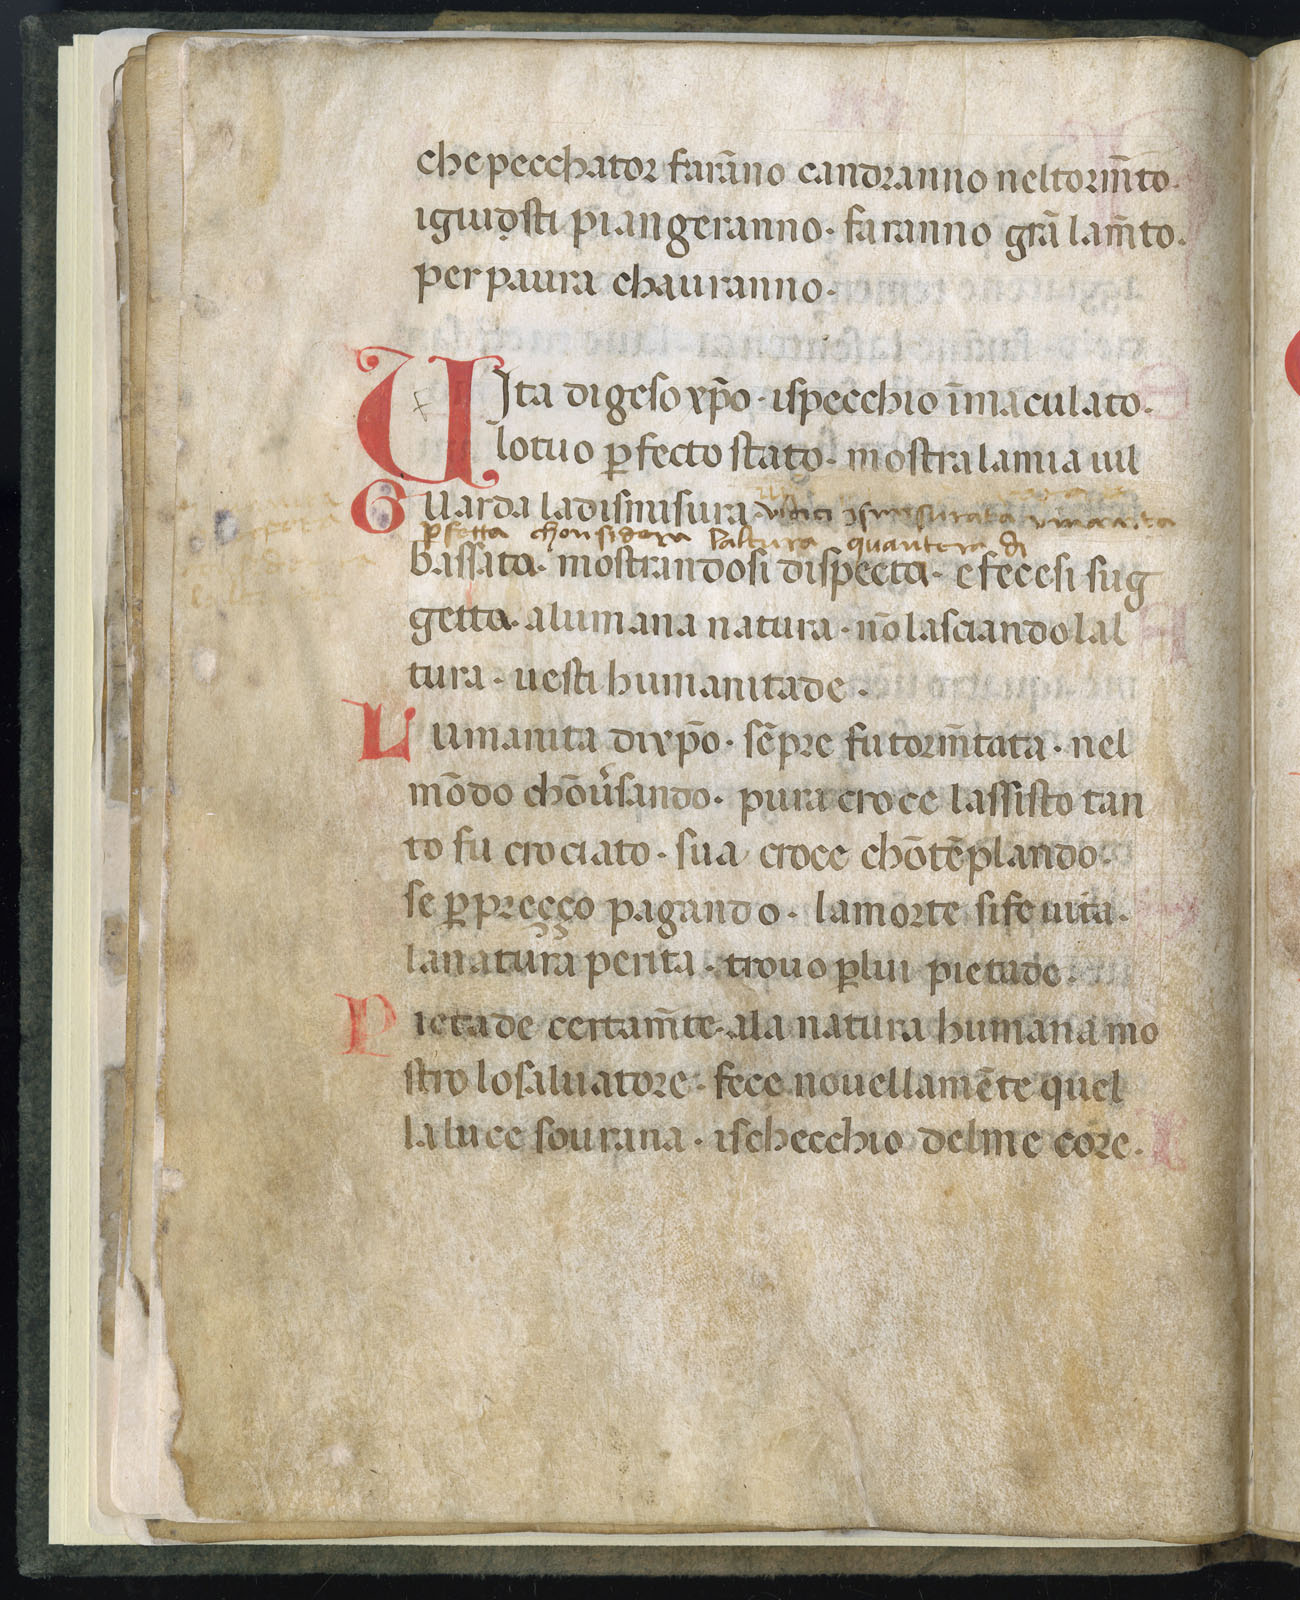 che pecchator farāno candranno nel torm̄to.
igiudosti piangeranno. faranno grā lam̄to.
per paura chauranno.
UJta digeso xp̄o. ispecchio īmaculato.
lotuo ꝑfecto stato. mostra lamia uil
Guarda ladismisura isvisurata
ꝑfetta chonsidera laltura quantera di
bassata. mostrandosi dispecta. e fecesi sug
getta. alumana natura. nō lasciando lal
tura. uesti humanitade.
Lumanita dixp̄o. sēpre fu torm̄tata. nel
mōdo chōu̓sando. pura croce lassisto tan
to fu crociato. sua croce chōtēplando.
se ꝑ preçço pagando. lamorte sife uita.
lanatura perita. trouo ꝑlui pietade.
Pietade certam̄te. ala natura humana mo
stro lo saluatore. fece nouellamēte quel
la luce sourana. ischecchio delme core.